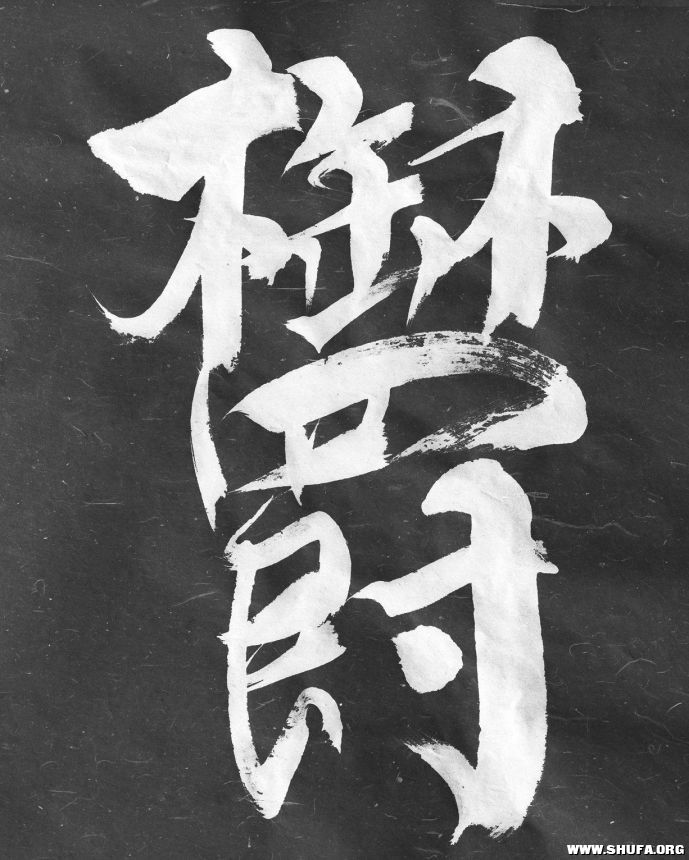 欝
WWW.SHUFA.ORG